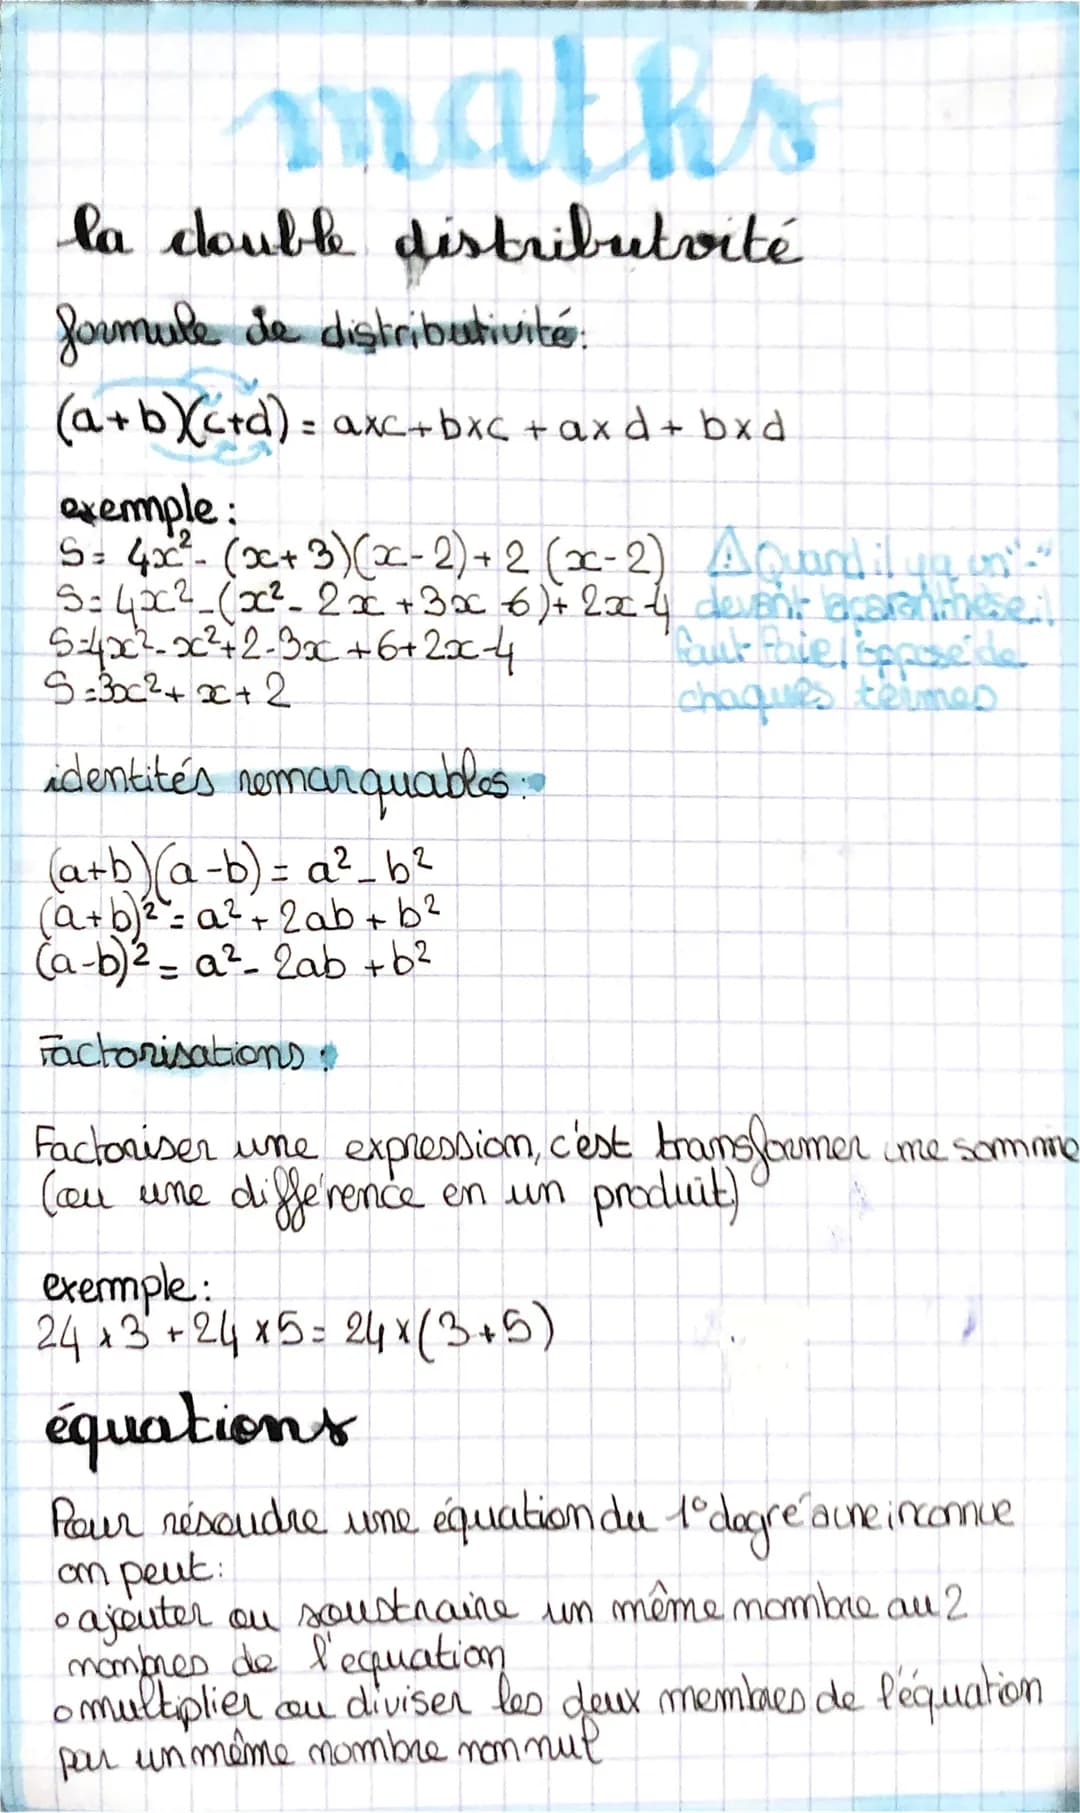 maths
la double distributvité
formule de distributivité:
(a+b)(c+d) = axc+bxc + axd + bxd
exemple :
S= 4x² - (x+3)(x-2)+2 (x-2)
S=4x²-(x²-2x+3x-6)+2x-4
S=4x²-x²+2-3x+6+2x-4
S=3x²+x+2
⚠ Quand il y a un "-"
devant la parenthèse il
faut faie l'opposé de
chaques termes
identités remarquables :
(a+b)(a-b) = a²-b²
(a+b)² = a²+2ab+b²
(a-b)² = a²-2ab+b²
Factorisations :
Factoriser une expression, c'est transformer une somme
(ou une différence en un produit)
exemple :
24 x 3 + 24 x 5 = 24 x (3+5)
équations
Pour résoudre une équation du 1° degré a une inconnue
on peut :
o ajouter ou soustraire un même nombre au 2
membres de l'equation
o multiplier ou diviser les deux membres de l'équation
par un même nombre non nul